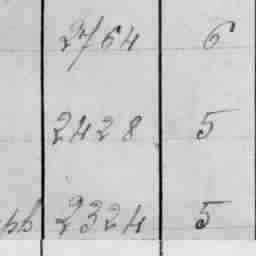 2764 6
2428 5
2324 5